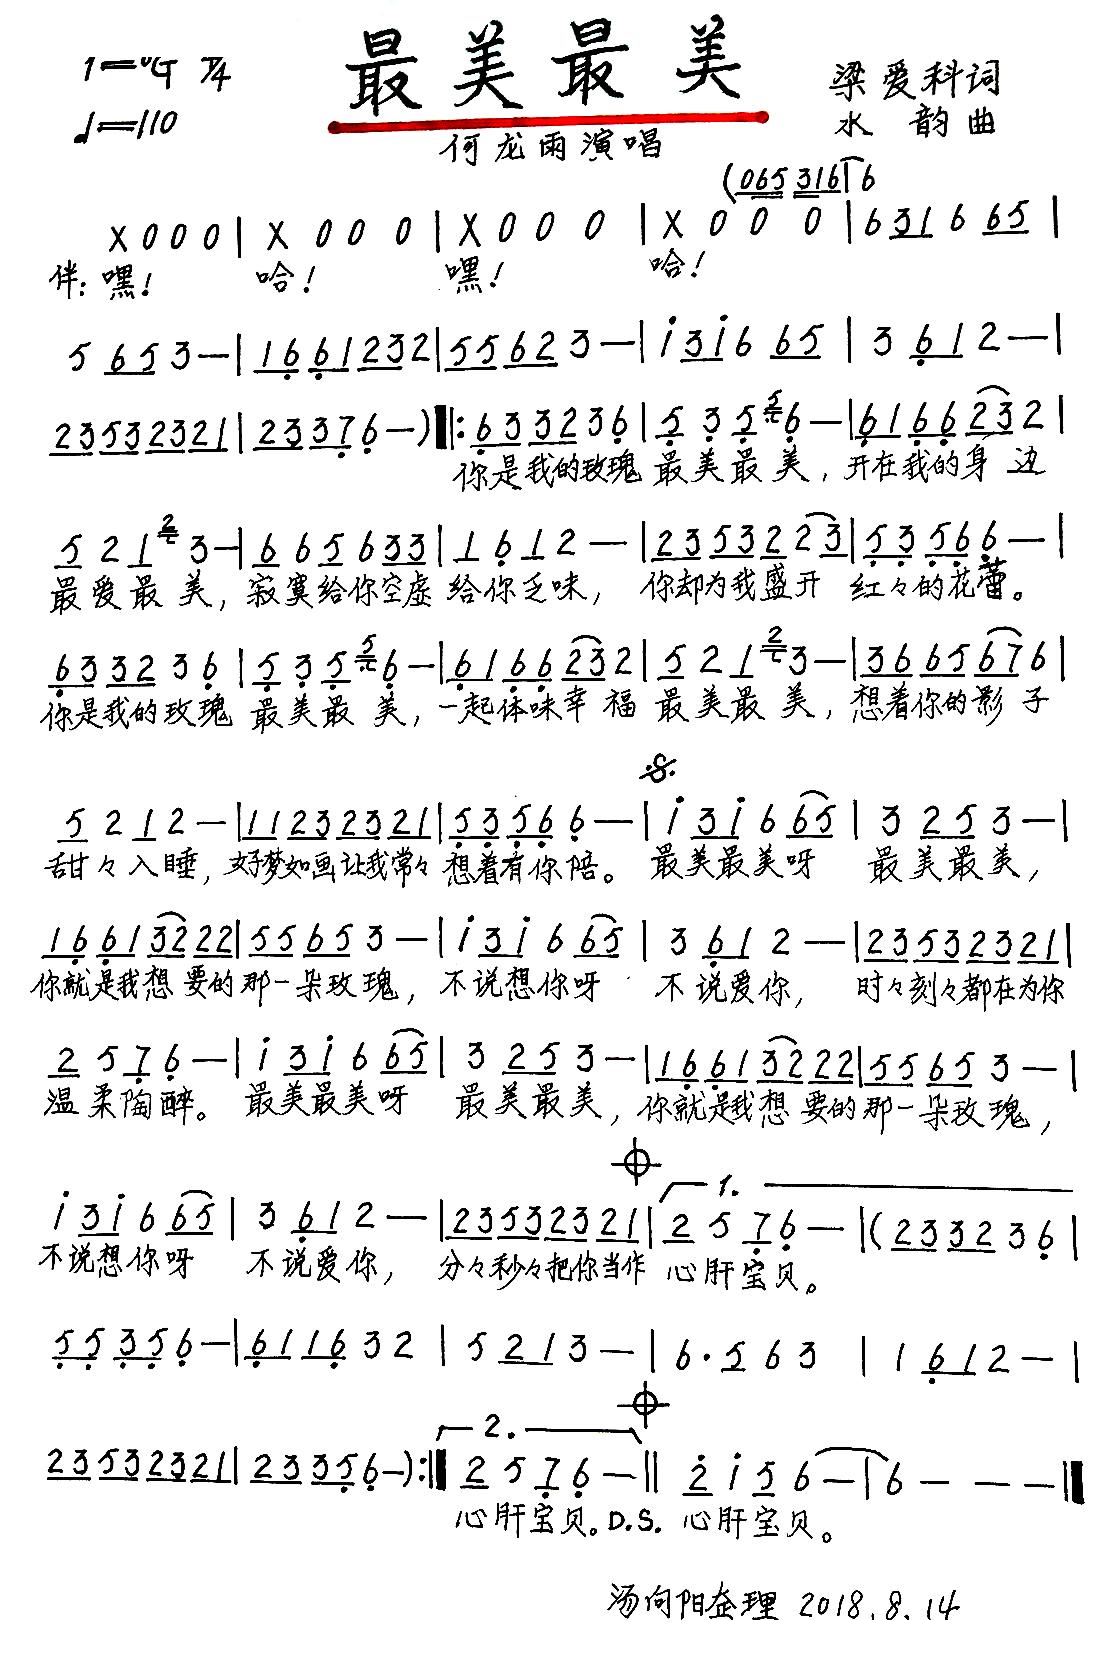 1=♭G 4/4 最美最美 梁爱科词
♩=110 水 韵曲
何龙雨演唱
(065 316 1 6
X 0 0 0 | X 0 0 0 | X 0 0 0 | X 0 0 0 | 6 31 6 65 |
伴:嘿! 哈! 嘿! 哈!
5 65 3 — | 16 61 23 2 | 55 62 3 — | i 3i 6 65 | 3 61 2 — |
23532321 | 23376 — ) ‖: 633236 | 5 3 5 6 — | 6166232 |
你是我的玫瑰 最美最美, 开在我的身边
5 2 1 3 — | 6 6 5 6 33 | 1 6 1 2 — | 23532 2 3 | 53566 — |
最爱最美, 寂寞给你空虚 给你乏味, 你却为我盛开 红々的花蕾。
633236 | 5 3 5 6 — | 6166232 | 5 2 1 3 — | 3665676 |
你是我的玫瑰 最美最美, 一起体味幸福 最美最美, 想着你的影子
𝄋
5 2 1 2 — | 11232321 | 53566 — | i 3i 6 65 | 3 25 3 — |
甜々入睡, 好梦如画让我常々 想着有你陪。 最美最美呀 最美最美,
16613222 2 | 5565 3 — | i 3i 6 65 | 3 61 2 — | 23532321 |
你就是我想要的那一朵玫瑰, 不说想你呀 不说爱你, 时々刻々都在为你
2 5 7 6 — | i 3i 6 65 | 3 25 3 — | 16613222 2 | 5565 3 — |
温柔陶醉。 最美最美呀 最美最美, 你就是我想要的那一朵玫瑰,
1.
i 3i 6 65 | 3 61 2 — | 23532321 | 2 5 7 6 — | (233236 |
不说想你呀 不说爱你, 分々秒々把你当作 心肝宝贝。
55356 — | 611632 | 5 21 3 — | 6·5 6 3 | 1 61 2 — |
2.
23532321 | 23356 — ) :‖ 2 5 7 6 — ‖ 2 i 5 6 — | 6 — — — ‖
心肝宝贝。D.S. 心肝宝贝。
汤向阳整理 2018.8.14